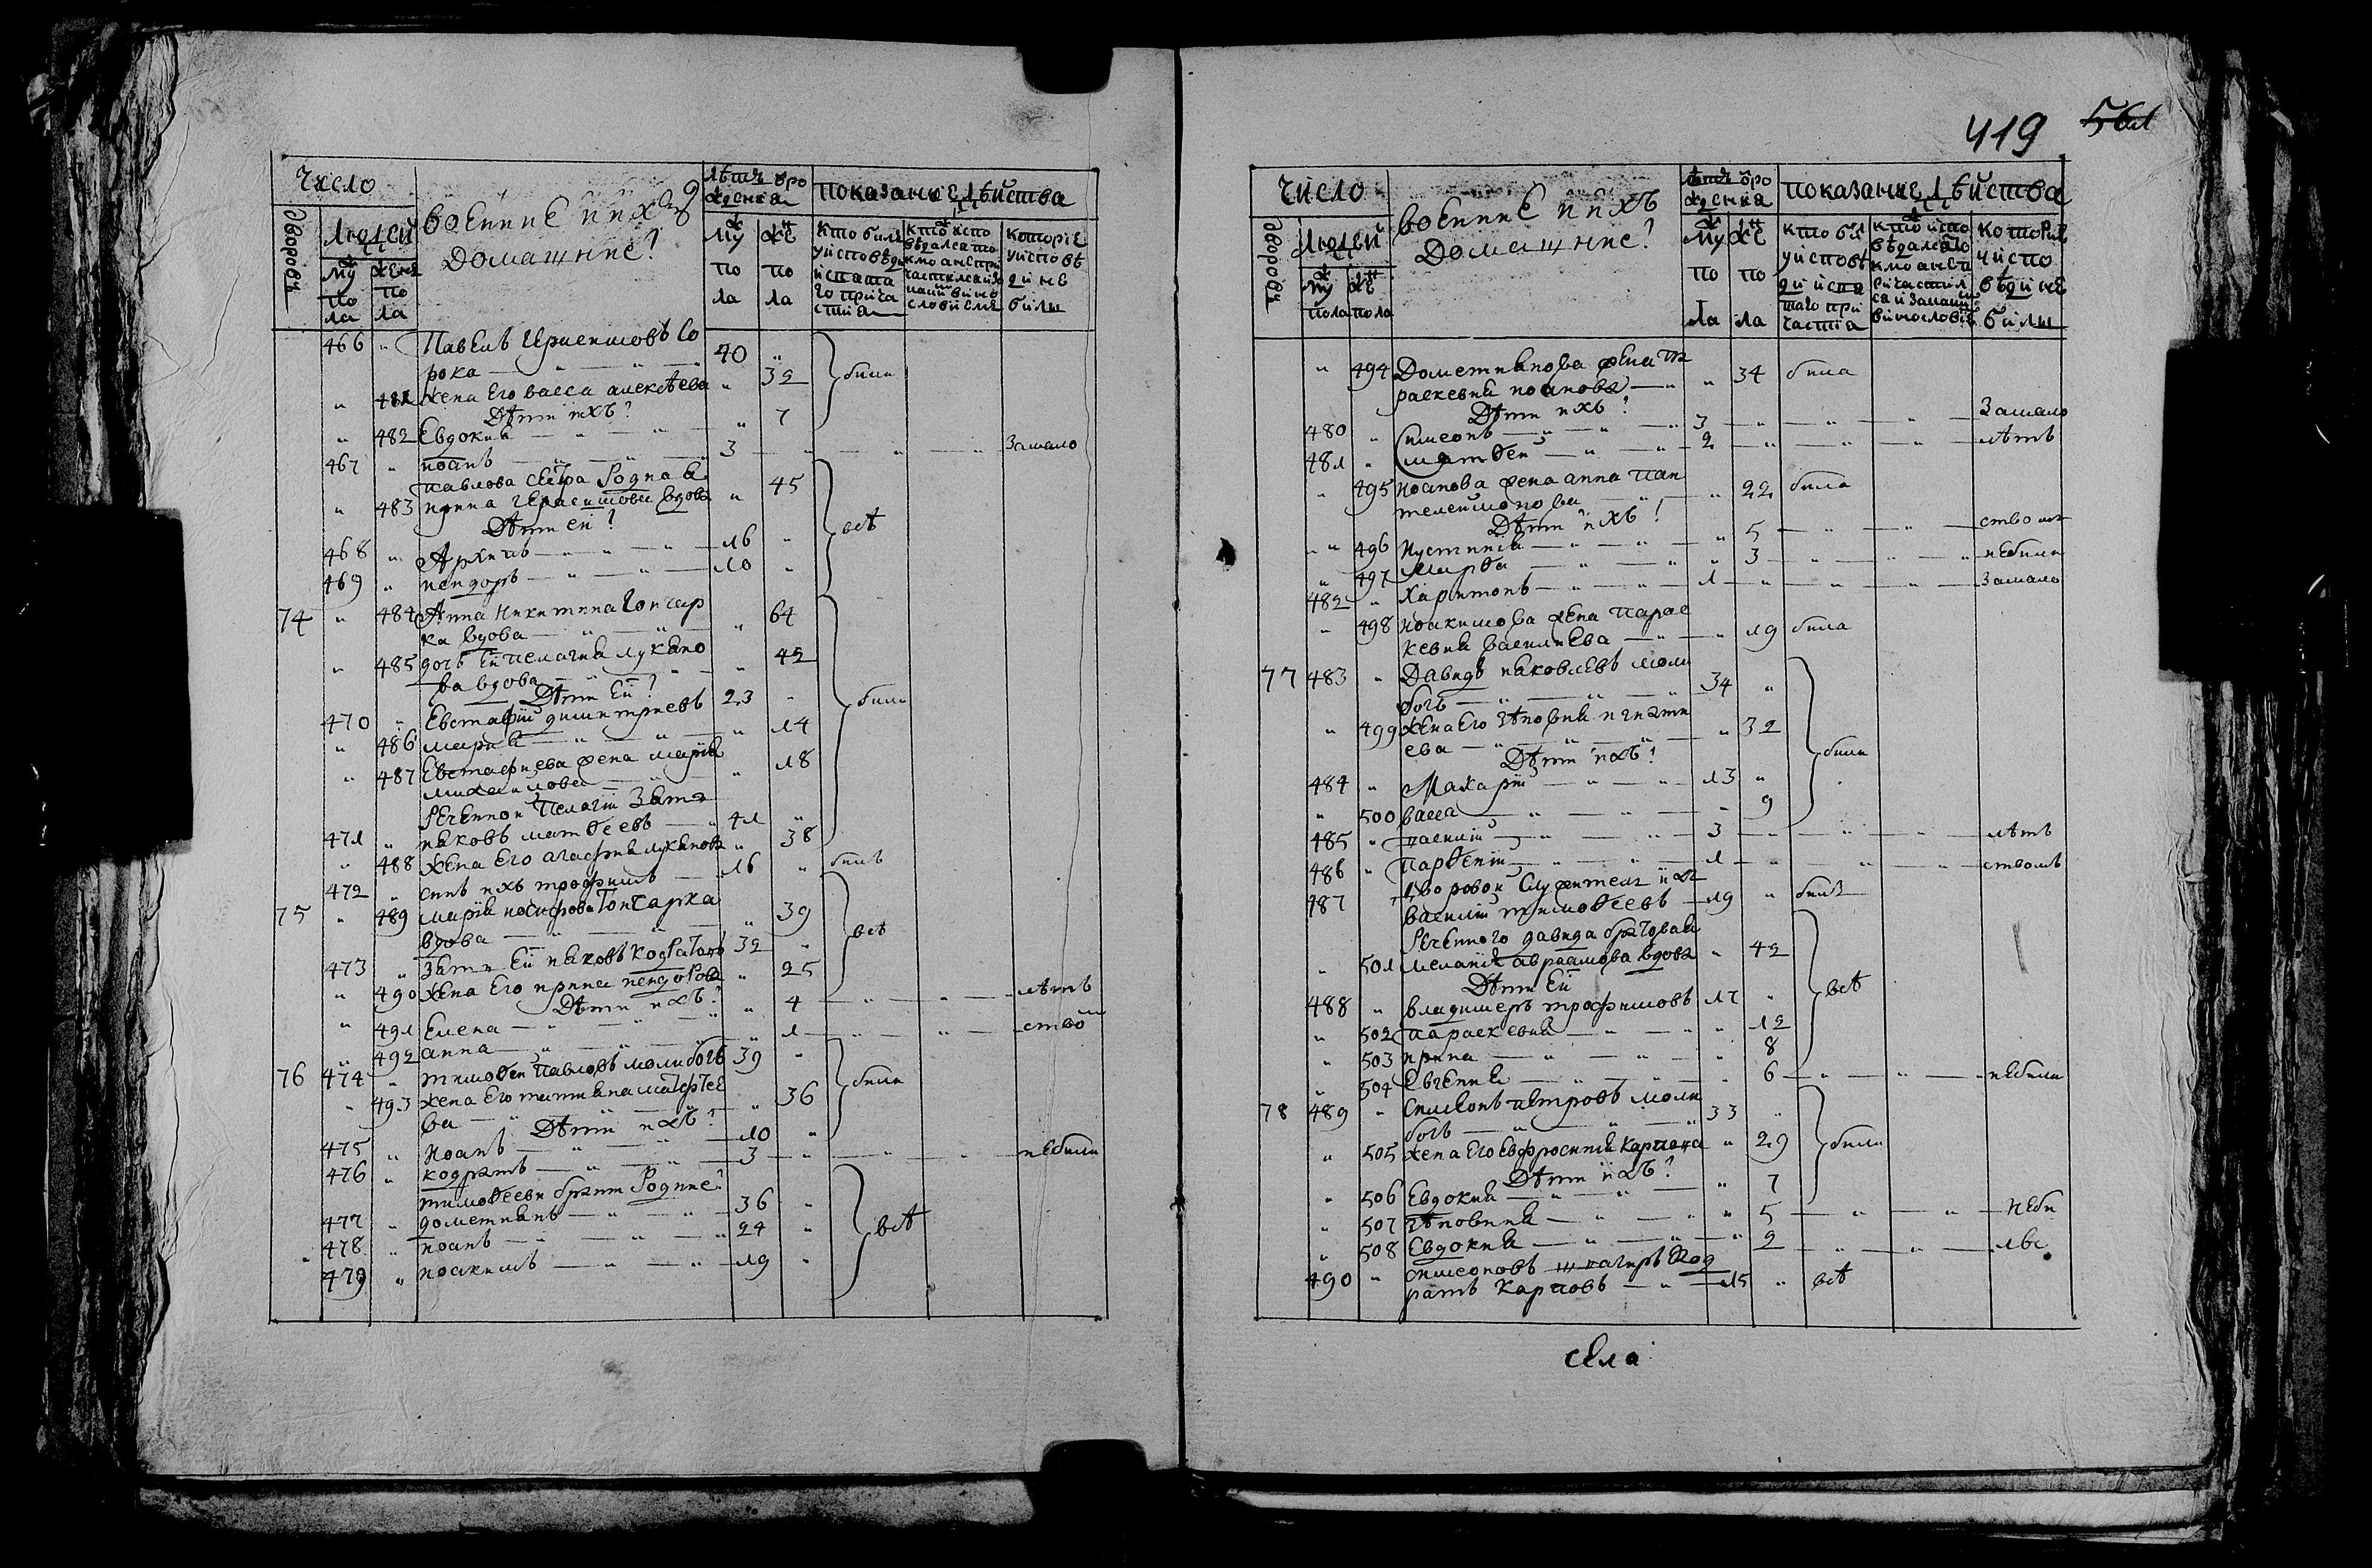 419 561
Число
Людей
военные и ихъ
домашние?
лѣтъ ѿ ро
жденія
показаніе дѣйства
Дворовъ
му
по
ла
жен
по
ла
му
по
ла
же
по
ла
кто былъ
у исповѣди
и свята
го прича
стія
кто испо
вѣдался то
кмо а не при
частился и за
каким вино
словіемъ
которіе
у исповѣ
ди не
были
466 " Павелъ Герасимовъ Со
рока — " — 40 "
были
" 481 жена его васса алексѣева " 32
Дѣти ихъ?
" 482 Евдокия — " — " 7
467 " иоанъ — " — 3 — " — " — " — Замало
павлова сестра родна а
" 483 ирина герасимова вдова " 45
Дѣти ей?
всѣ
468 " Архипъ — " — 16 "
469 " исидоръ — " — 10 "
74 " 484 Анна Никитина Гончар
ка вдова — " — " 64
" 485 дочь ей пелагия лукяно
ва вдова — " — " 42
Дѣти ей?
были
470 " Евстафій димитриевъ 23 "
" 486 мария — " — " 14
" 487 Евстафиева жена мария
михаилова — " 18
реченной Пелагіи Зять
471 " иаковъ матѳеевъ — 41 "
" 488 жена его агафия лукянова " 38
472 " синъ ихъ трофимъ — 16 " былъ
75 " 489 мария иосифова Гончарка
вдова — " — " 39
всѣ
473 " Зять ей иаковъ кодратовъ 32 "
" 490 жена его ирина исидорова " 25
Дѣти ихъ?
" 491 Елена — " — " 4 — " — " — лѣтъ
" 492 анна — " — " 1 — " — " — ство
76 474 " тимоѳей павловъ молибогъ 39 "
были
" 493 жена его татияна матфѣе
ва — " — " 36
Дѣти ихъ?
475 " Иоанъ — " — 10 "
476 " кодратъ — " — 3 — " — " — " — не были
тимоѳееви брати родние?
477 " дометиянъ — " — 36 "
всѣ
478 " иоанъ — " — 24 "
479 " иоакимъ — " — 19 "
Число
Людей
военние и ихъ
Домашние?
лѣтъ ѿ ро
жденія
показаніе дѣйства
Дворовъ
му
пола
же
пола
му
по
ла
же
по
ла
кто был
у исповѣ
ди и свя
таго при
частія
кто испо
вѣдался то
кмо а не п
ричастил
ся и за каким
винословіем
которіе
у испо
вѣди не
были
" 494 Дометиянова жена па
раскевия иоанова — " 34 была
Дѣти ихъ?
480 " Симеонъ — " — 3 — " — " — " — Замало
481 " Матѳей — " — 2 — " — " — " — лѣтъ
" 495 Иоанова жена анна пан
телеимонова — " 22 была
Дѣти ихъ!
" 496 Иустиния — " — " 5 — " — " — ством
" 497 Марѳа — " — " 3 — " — " — не были
482 " Харитонъ — " — 1 — " — " — " — Замало
" 498 Иоакимова жена парас
кевия василиева — " 19 была
77 483 " Давидъ иаковлевъ моли
богъ — " — 34 "
" 499 жена его зѣновия игнати
ева — " — " 32
Дѣти ихъ!
были
484 " Макарій — " — 13 "
" 500 васса — " — " 9
485 " василій — " — 3 — " — " — " — лѣтъ
486 " Парѳеній — " — 1 — " — " — " — стволъ
Дворовой служитель ихъ
487 " василій тимоѳеевъ — 19 " былъ
реченного давида братовая
" 501 мелания авраамова вдова " 42
Дѣти ей
всѣ
488 " владимеръ трофимовъ 17 "
" 502 параскевия — " — " 12
" 503 ирина — " — " 8
" 504 Евгения — " — " 6 — " — " — не были
78 489 " Симеонъ петровъ моли
богъ — " — 33 "
" 505 жена его Евфросиния карпова " 29
были
Дѣти ихъ?
" 506 Евдокия — " — " 7
" 507 зѣновия — " — " 5 — " — " — неби
" 508 Евдокия — " — " 2 — " — " — лис
490 " симеоновъ шкагиръ код
ратъ карповъ — " — 15 " всѣ
села